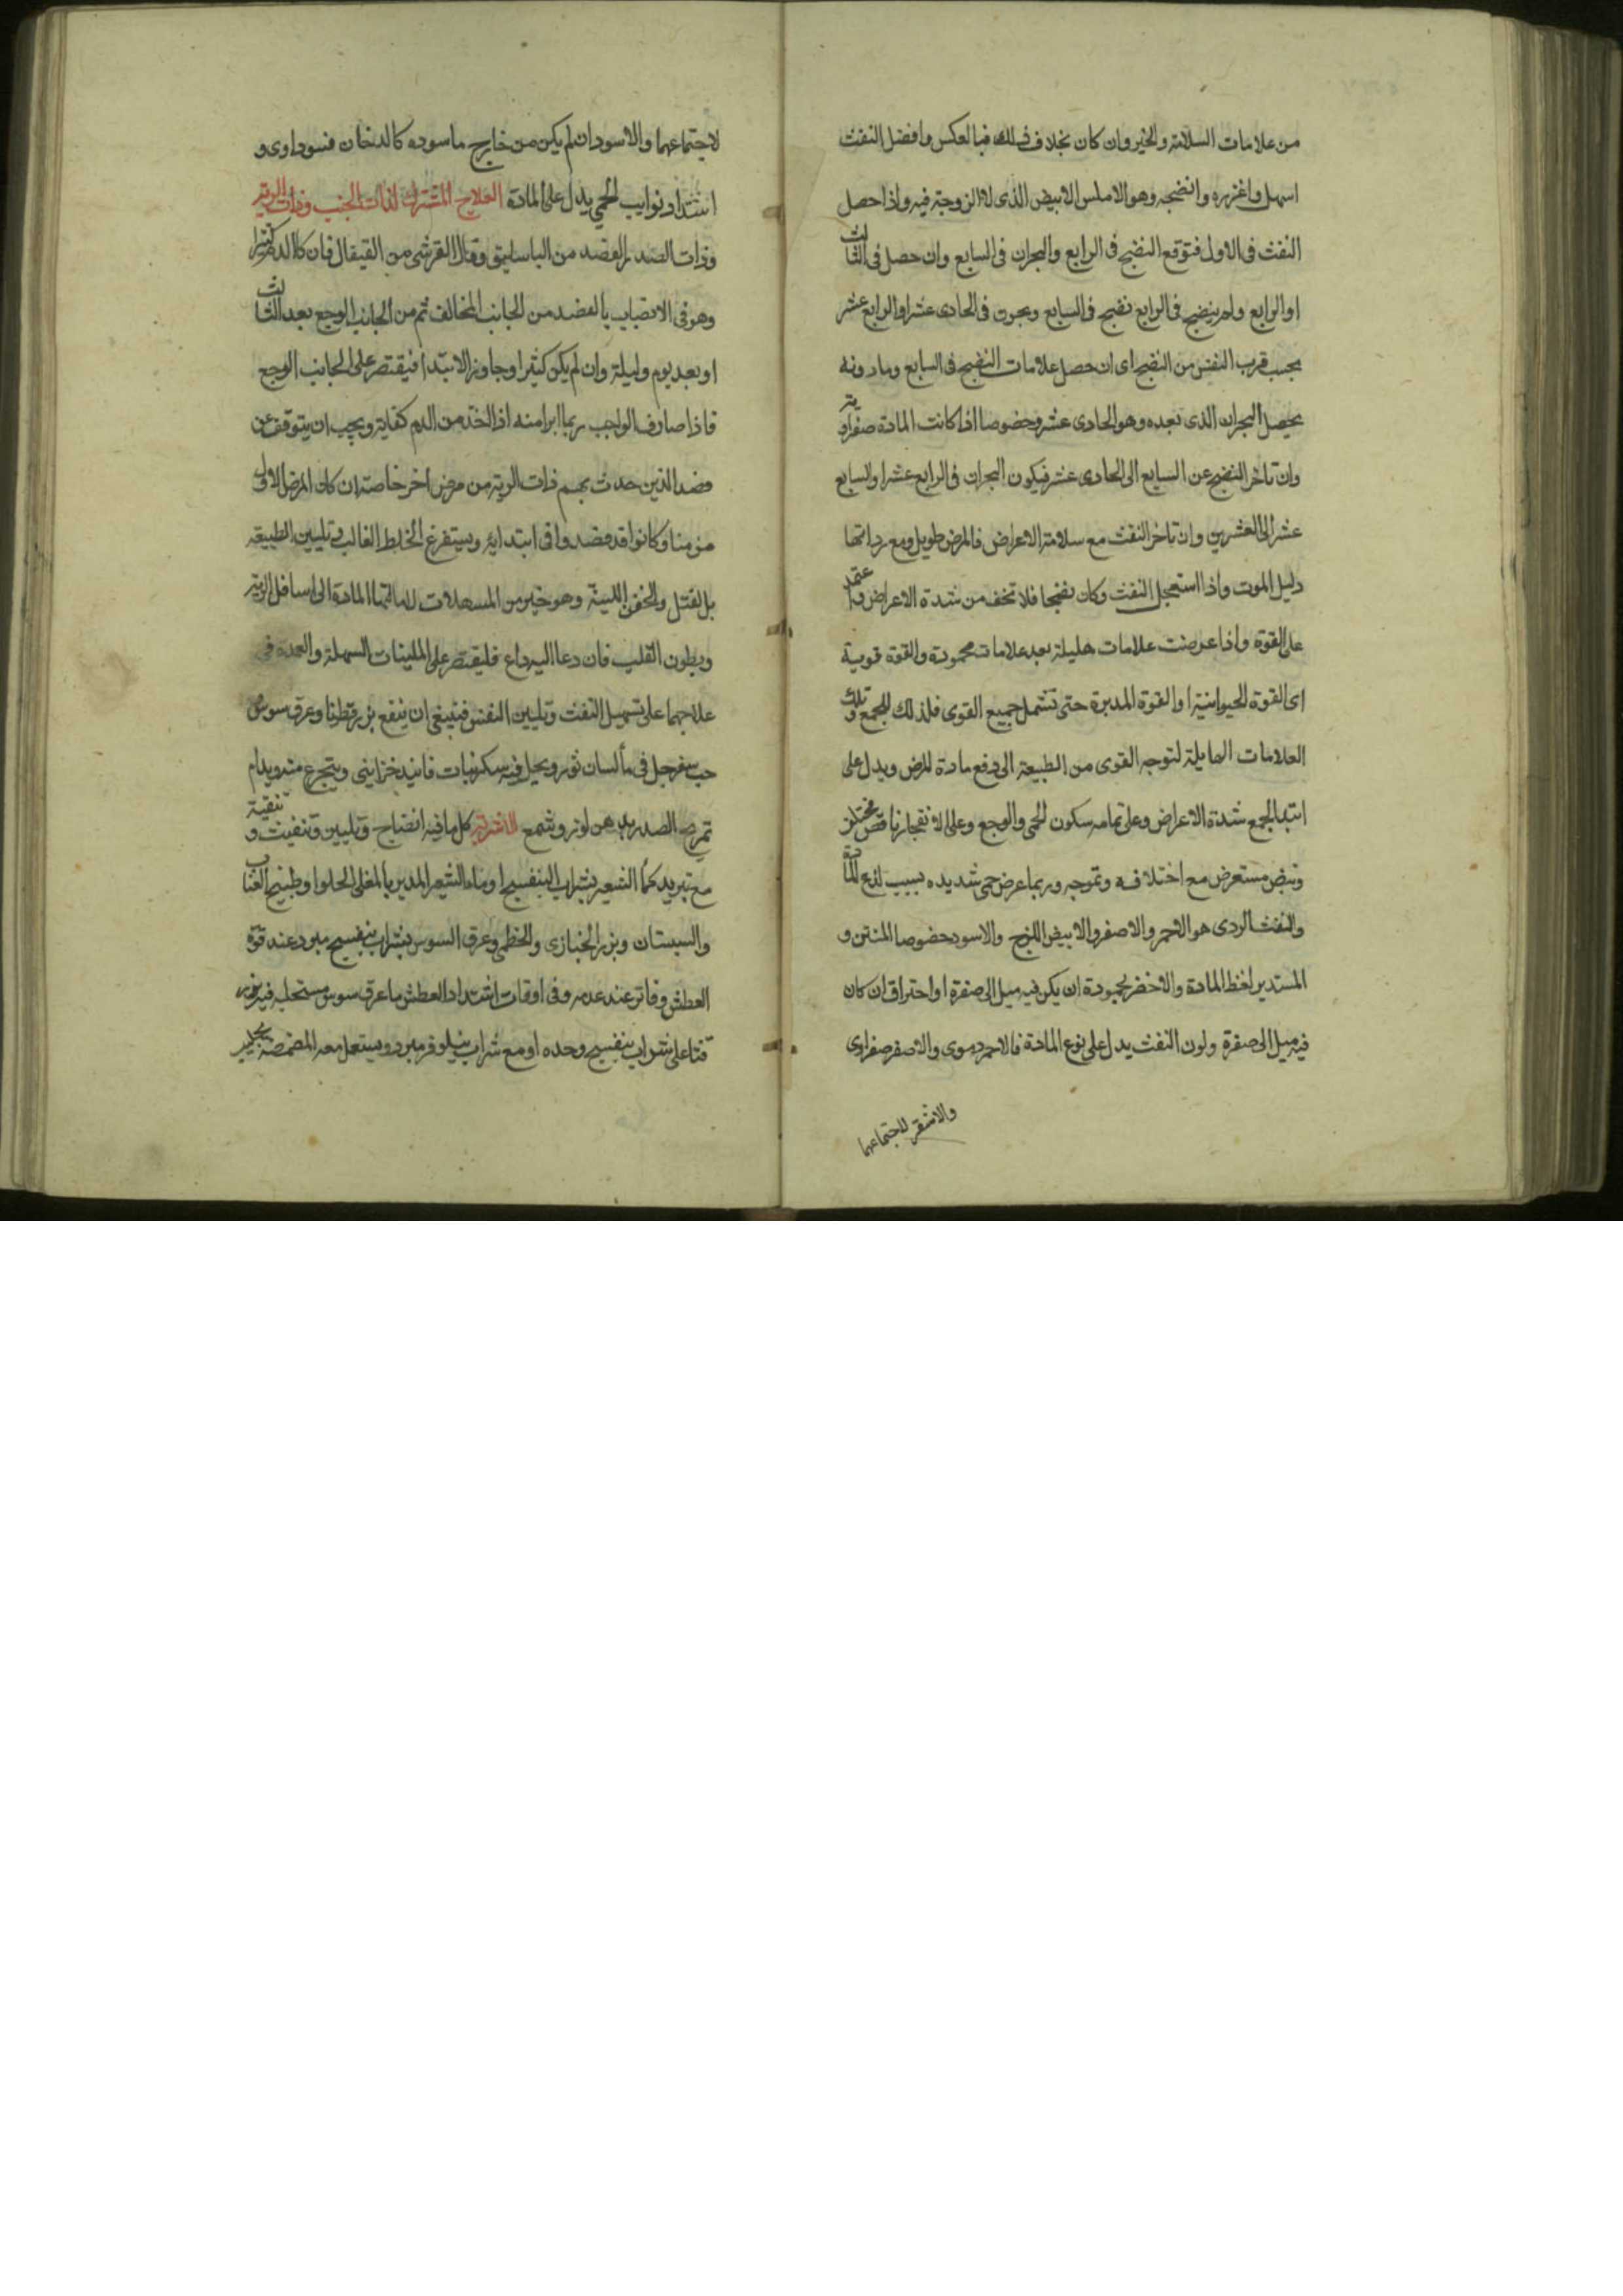 من علامات السلامة والخير وان كان بخلاف ذلك فبالعكس وافضل النفث
اسهل واغزره وانضجه وهو الاملس الابيض الذى لا لزوجة فيه واذا حصل
النفث فى الاول فتوقع النضج فى الرابع والبحران فى السابع وان حصل فى الثالث
او الرابع ولم ينضج فى الرابع نضج فى السابع وبحرن فى الحادى عشر او الرابع عشر
بحسب قرب النفث من النضج اى ان حصل علامات النضج فى السابع وما دونه
يحصل البحران الذى بعده وهو الحادى عشر وخصوصا اذا كانت المادة صفراوية
وان تاخر النضج عن السابع الى الحادى عشر فيكون البحران فى الرابع عشر او السابع
عشر الى العشرين وان تاخر النفث مع سلامة الاعراض فالمرض طويل ومع رداتها
دليل الموت واذا استعجل النفث وكان نضجا فلا تخف من شدة الاعراض واعتمد
على القوة واذا عرضت علامات هايلة بعد علامات محمودة والقوة قوية
اى القوة الحيوانية او القوة المدبرة حتى تشمل جميع القوى فلذلك للجمع وتلك
العلامات الهايلة لتوجه القوى من الطبيعة الى دفع مادة المرض ويدل على
ابتدا الجمع شدة الاعراض وعلى تمامه سكون الحمى والوجع وعلى الانفجار نافض مختلف
ونبض مستعرض مع اختلافه وتموجه وربما عرض حمى شديده بسبب لذع المادة
والنفث الردى هو الاحمر والاصفر والابيض اللزج والاسود خصوصا المنتن و
المستدير لغلظ المادة والاخضر لجمودة ان يكن فيه ميل الى صفرة او احتراق ان كان
فيه ميل الى صفرة ولون النفث يدل على نوع المادة فالاحمر دموى والاصفر صفراوى
والاشقر لاجتماعهما
لاجتماعهما والاسود ان لم يكن من خارج ما سوده كالدخان فسوداوى و
اشتداد نوايب الحمى يدل على المادة العلاج المشترك لذات الجنب وذات الرية
وذات الصدر الفصد من الباسليق وقال القرشى من القيفال فان كان الدم كثيرا
وهو فى الانصباب بالفصد من الجانب المخالف ثم من الجانب الوجع بعد الثالث
او بعد يوم وليلة وان لم يكن كثيرا وجاوز الابتدا فيقتصر على الجانب الوجع
فاذا صادف الواجب ربما ابرا منه اذا اخذ من الدم كفاية ويجب ان يتوقف عن
فصد الذين حدث بهم ذات الرية من مرض اخر خاصة ان كان المرض الاول
مزمنا وكانوا قد فصدوا فى ابتدايه ويستفرغ الخلط الغالب وتليين الطبيعة
بالفتل والحقن اللينة وهو خير من المسهلات لامالتها المادة الى اسافل الرية
وبطون القلب فان دعا اليه داع فليقتصر على الملينات السهلة والعمدة فى
علاجهما على تسهيل النفث وتليين النفس فينبغى ان ينقع بزر قطونا وعرق سوس
حب سفرجل فى ما لسان ثور ويحل فيه سكر نبات فانيد خزاينى ويتجرع منه ويدام
تمريخ الصدر بدهن لوز وشمع الاشربة كل ما فيه انضاج وتليين وتنفيث وتنقية
مع تبريد كما الشعير بشراب البنفسج او ماء الشعير المدبر بالمغلى الحلو او طبيخ العناب
والسبستان وبزر الخبازى والخطمى وعرق السوس بشراب بنفسج مبرد عند قوة
العطش وفاتر عند عدمه وفى اوقات اشتداد العطش ما عرق سوس مستحلب فيه بزر
قثا على شراب بنفسج وحده او مع شراب نيلوفر مبرد ويستعمل معه المضمضة